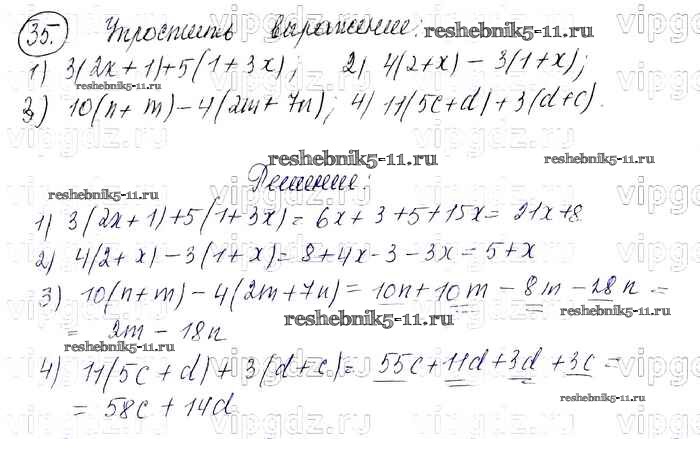 35. Упростить выражение:
1) 3(2x+1)+5(1+3x); 2) 4(2+x)-3(1+x);
3) 10(n+m)-4(2m+7n); 4) 11(5c+d)+3(d+c).
Решение:
1) 3(2x+1)+5(1+3x)=6x+3+5+15x=21x+8
2) 4(2+x)-3(1+x)=8+4x-3-3x=5+x
3) 10(n+m)-4(2m+7n)=10n+10m-8m-28n=
=2m-18n
4) 11(5c+d)+3(d+c)=55c+11d+3d+3c=
=58c+14d
reshebnik5-11.ru
reshebnik5-11.ru
reshebnik5-11.ru
reshebnik5-11.ru
reshebnik5-11.ru
reshebnik5-11.ru
reshebnik5-11.ru
reshebnik5-11.ru
vipgdz.ru